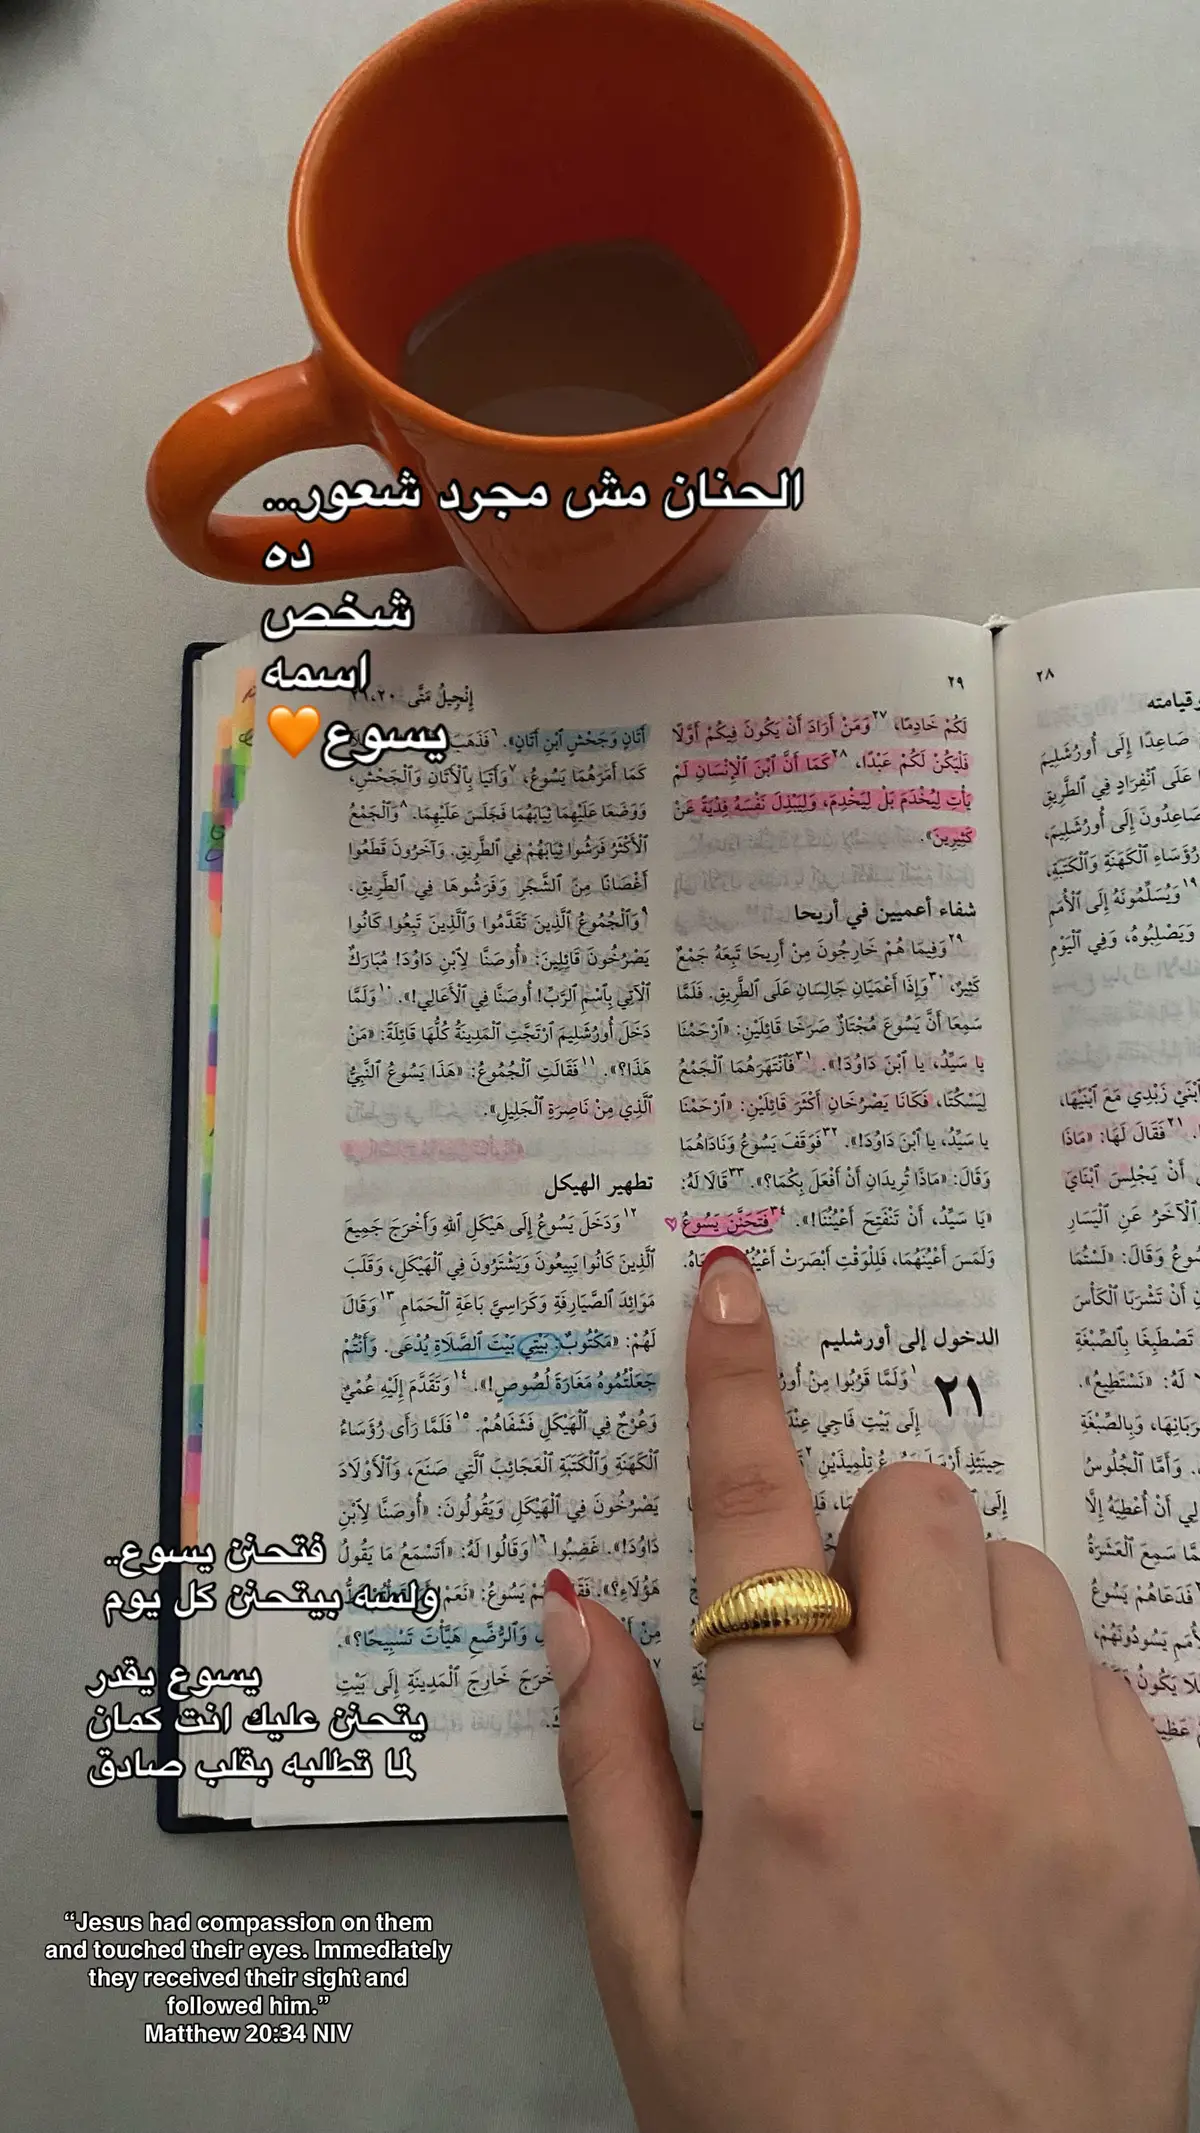 الحنان مش مجرد شعور...
ده
شخص
اسمه
يسوع🧡
٢٨
٢٩
إِنْجِيلُ مَتَّى
لَكُمْ خَادِمًا، ٢٧وَمَنْ أَرَادَ أَنْ يَكُونَ فِيكُمْ أَوَّلًا
فَلْيَكُنْ لَكُمْ عَبْدًا، ٢٨كَمَا أَنَّ ٱبْنَ ٱلْإِنْسَانِ لَمْ
يَأْتِ لِيُخْدَمَ بَلْ لِيَخْدِمَ، وَلِيَبْذِلَ نَفْسَهُ فِدْيَةً عَنْ
كَثِيرِينَ».
شفاء أعميين في أريحا
٢٩وَفِيمَا هُمْ خَارِجُونَ مِنْ أَرِيحَا تَبِعَهُ جَمْعٌ
كَثِيرٌ، ٣٠وَإِذَا أَعْمَيَانِ جَالِسَانِ عَلَى ٱلطَّرِيقِ. فَلَمَّا
سَمِعَا أَنَّ يَسُوعَ مُجْتَازٌ صَرَخَا قَائِلَيْنِ: «ٱرْحَمْنَا
يا سَيِّدُ، يا ٱبْنَ دَاوُدَ!». ٣١فَٱنْتَهَرَهُمَا ٱلْجَمْعُ
لِيَسْكُتَا، فَكَانَا يَصْرُخَانِ أَكْثَرَ قَائِلَيْنِ: «ٱرْحَمْنَا
يا سَيِّدُ، يا ٱبْنَ دَاوُدَ!». ٣٢فَوَقَفَ يَسُوعُ وَنَادَاهُمَا
وَقَالَ: «مَاذَا تُرِيدَانِ أَنْ أَفْعَلَ بِكُمَا؟». ٣٣قَالَا لَهُ:
«يَا سَيِّدُ، أَنْ تَنْفَتِحَ أَعْيُنُنَا!». ٣٤فَتَحَنَّنَ يَسُوعُ
وَلَمَسَ أَعْيُنَهُمَا، فَلِلْوَقْتِ أَبْصَرَتْ
الدخول إلى أورشليم
٢١
١وَلَمَّا قَرُبُوا مِنْ
إِلَى بَيْتِ فَاجِي
حِينَئِذٍ
أَتَانٍ وَجَحْشٍ ٱبْنِ أَتَانٍ». ٦
كَمَا أَمَرَهُمَا يَسُوعُ، ٧وَأَتَيَا بِٱلْأَتَانِ وَٱلْجَحْشِ،
وَوَضَعَا عَلَيْهِمَا ثِيَابَهُمَا فَجَلَسَ عَلَيْهِمَا. ٨وَٱلْجَمْعُ
ٱلْأَكْثَرُ فَرَشُوا ثِيَابَهُمْ فِي ٱلطَّرِيقِ. وَآخَرُونَ قَطَعُوا
أَغْصَانًا مِنَ ٱلشَّجَرِ وَفَرَشُوهَا فِي ٱلطَّرِيقِ،
٩وَٱلْجُمُوعُ ٱلَّذِينَ تَقَدَّمُوا وَٱلَّذِينَ تَبِعُوا كَانُوا
يَصْرُخُونَ قَائِلِينَ: «أُوصَنَّا لِٱبْنِ دَاوُدَ! مُبَارَكٌ
ٱلْآتِي بِٱسْمِ ٱلرَّبِّ! أُوصَنَّا فِي ٱلْأَعَالِي!». ١٠وَلَمَّا
دَخَلَ أُورُشَلِيمَ ٱرْتَجَّتِ ٱلْمَدِينَةُ كُلُّهَا قَائِلَةً: «مَنْ
هَذَا؟». ١١فَقَالَتِ ٱلْجُمُوعُ: «هَذَا يَسُوعُ ٱلنَّبِيُّ
ٱلَّذِي مِنْ نَاصِرَةِ ٱلْجَلِيلِ».
تطهير الهيكل
١٢وَدَخَلَ يَسُوعُ إِلَى هَيْكَلِ ٱللهِ وَأَخْرَجَ جَمِيعَ
ٱلَّذِينَ كَانُوا يَبِيعُونَ وَيَشْتَرُونَ فِي ٱلْهَيْكَلِ، وَقَلَبَ
مَوَائِدَ ٱلصَّيَارِفَةِ وَكَرَاسِيَّ بَاعَةِ ٱلْحَمَامِ ١٣وَقَالَ
لَهُمْ: «مَكْتُوبٌ: بَيْتِي بَيْتَ ٱلصَّلَاةِ يُدْعَى. وَأَنْتُمْ
جَعَلْتُمُوهُ مَغَارَةَ لُصُوصٍ!». ١٤وَتَقَدَّمَ إِلَيْهِ عُمْيٌ
وَعُرْجٌ فِي ٱلْهَيْكَلِ فَشَفَاهُمْ. ١٥فَلَمَّا رَأَى رُؤَسَاءُ
ٱلْكَهَنَةِ وَٱلْكَتَبَةِ ٱلْعَجَائِبَ ٱلَّتِي صَنَعَ، وَٱلْأَوْلَادَ
يَصْرُخُونَ فِي ٱلْهَيْكَلِ وَيَقُولُونَ: «أُوصَنَّا لِٱبْنِ
دَاوُدَ!». غَضِبُوا ١٦وَقَالُوا لَهُ: «أَتَسْمَعُ مَا يَقُولُ
هَؤُلَاءِ؟». يَسُوعُ: «نَعَمْ!
وَٱلرُّضَّعِ هَيَّأْتَ تَسْبِيحًا؟».
خَارِجَ ٱلْمَدِينَةِ إِلَى بَيْتِ
صَاعِدًا إِلَى أُورُشَلِيمَ
عَلَى ٱنْفِرَادٍ فِي ٱلطَّرِيقِ
إِلَى أُورُشَلِيمَ،
رُؤَسَاءِ ٱلْكَهَنَةِ وَٱلْكَتَبَةِ،
١٩وَيُسَلِّمُونَهُ إِلَى ٱلْأُمَمِ
وَيَصْلِبُوهُ، وَفِي ٱلْيَوْمِ
ٱبْنَيْ زَبْدِي مَعَ ٱبْنَيْهَا،
٢١فَقَالَ لَهَا: «مَاذَا
أَنْ يَجْلِسَ ٱبْنَايَ
وَٱلْآخَرُ عَنِ ٱلْيَسَارِ
وَقَالَ: «لَسْتُمَا
أَنْ تَشْرَبَا ٱلْكَأْسَ
تَصْطَبِغَا بِٱلصِّبْغَةِ
لَهُ: «نَسْتَطِيعُ».
وَبِالصِّبْغَةِ
وَأَمَّا ٱلْجُلُوسُ
لِي أَنْ أُعْطِيَهُ إِلَّا
سَمِعَ ٱلْعَشَرَةُ
فَدَعَاهُمْ يَسُوعُ
يَسُودُونَهُمْ،
فتحنن يسوع..
ولسه بيتحنن كل يوم
يسوع يقدر
يتحنن عليك انت كمان
لما تطلبه بقلب صادق
“Jesus had compassion on them
and touched their eyes. Immediately
they received their sight and
followed him.”
Matthew 20:34 NIV